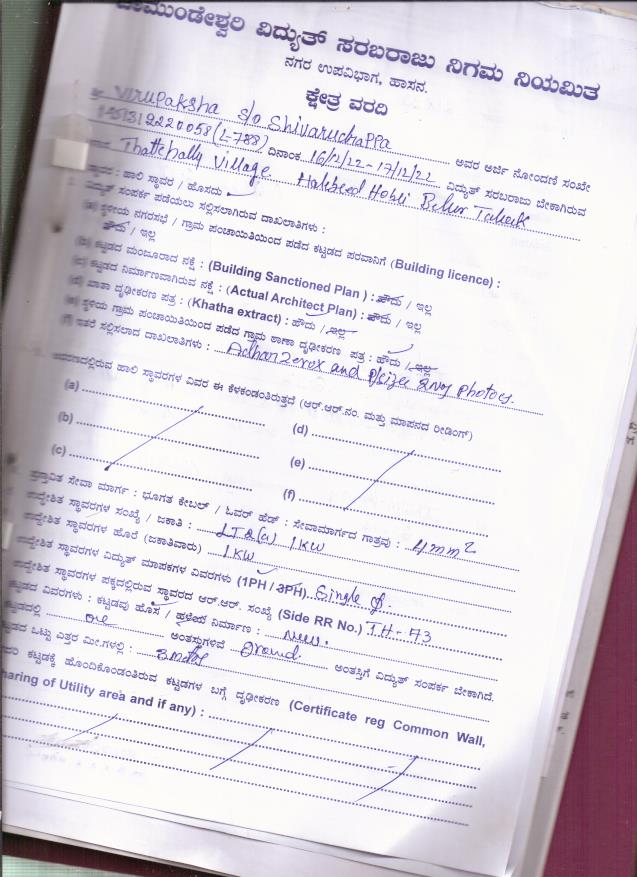 ಚಾಮುಂಡೇಶ್ವರಿ ವಿದ್ಯುತ್ ಸರಬರಾಜು ನಿಗಮ ನಿಯಮಿತ
ನಗರ ಉಪವಿಭಾಗ, ಹಾಸನ.
ಕ್ಷೇತ್ರ ವರದಿ
Virupaksha s/o Shivaruchappa ಅವರ ಅರ್ಜಿ ನೋಂದಣಿ ಸಂಖ್ಯೇ
(L-788) ದಿನಾಂಕ 16/12/22-17/12/22 ವಿದ್ಯುತ್ ಸರಬರಾಜು ಬೇಕಾಗಿರುವ
Thattehally Village Halebeed Hobli Belur Taluk
ಸ್ಥಾವರ : ಹಾಲಿ ಸ್ಥಾವರ / ಹೊಸದು
ವಿದ್ಯುತ್ ಸಂಪರ್ಕ ಪಡೆಯಲು ಸಲ್ಲಿಸಲಾಗಿರುವ ದಾಖಲಾತಿಗಳು :
(a) ಸ್ಥಳೀಯ ನಗರಸಭೆ / ಗ್ರಾಮ ಪಂಚಾಯಿತಿಯಿಂದ ಪಡೆದ ಕಟ್ಟಡದ ಪರವಾನಿಗೆ (Building licence) :
ಹೌದು / ಇಲ್ಲ
(b) ಕಟ್ಟಡದ ಮಂಜೂರಾದ ನಕ್ಷೆ : (Building Sanctioned Plan) : ಹೌದು / ಇಲ್ಲ
(c) ಕಟ್ಟಡದ ನಿರ್ಮಾಣವಾಗಿರುವ ನಕ್ಷೆ : (Actual Architect Plan) : ಹೌದು / ಇಲ್ಲ
(d) ಖಾತಾ ದೃಢೀಕರಣ ಪತ್ರ : (Khatha extract) : ಹೌದು / ಇಲ್ಲ
(e) ಸ್ಥಳೀಯ ಗ್ರಾಮ ಪಂಚಾಯಿತಿಯಿಂದ ಪಡೆದ ಗ್ರಾಮ ಠಾಣಾ ದೃಢೀಕರಣ ಪತ್ರ : ಹೌದು / ಇಲ್ಲ
(f) ಇತರೆ ಸಲ್ಲಿಸಲಾದ ದಾಖಲಾತಿಗಳು : Adhar Zerox and photos.
ಆವರಣದಲ್ಲಿರುವ ಹಾಲಿ ಸ್ಥಾವರಗಳ ವಿವರ ಈ ಕೆಳಕಂಡಂತಿರುತ್ತದೆ (ಆರ್.ಆರ್.ನಂ. ಮತ್ತು ಮಾಪನದ ರೀಡಿಂಗ್)
(a) (d)
(b) (e)
(c) (f)
ಪ್ರಸ್ತಾವಿತ ಸೇವಾ ಮಾರ್ಗ : ಭೂಗತ ಕೇಬಲ್ / ಓವರ್ ಹೆಡ್ : ಸೇವಾಮಾರ್ಗದ ಗಾತ್ರವು : 4mm2
ಉದ್ದೇಶಿತ ಸ್ಥಾವರಗಳ ಸಂಖ್ಯೆ / ಜಕಾತಿ : LT2(a) 1KW
ಉದ್ದೇಶಿತ ಸ್ಥಾವರಗಳ ಹೊರೆ (ಜಕಾತಿವಾರು) 1KW
ಉದ್ದೇಶಿತ ಸ್ಥಾವರಗಳ ವಿದ್ಯುತ್ ಮಾಪಕಗಳ ವಿವರಗಳು (1PH / 3PH) Single
ಉದ್ದೇಶಿತ ಸ್ಥಾವರಗಳ ಪಕ್ಕದಲ್ಲಿರುವ ಸ್ಥಾವರದ ಆರ್.ಆರ್. ಸಂಖ್ಯೆ (Side RR No.) TH-73
ಕಟ್ಟಡದ ವಿವರಗಳು : ಕಟ್ಟಡವು ಹೊಸ / ಹಳೆಯ ನಿರ್ಮಾಣ : New.
ಕಟ್ಟಡದಲ್ಲಿ one ಅಂತಸ್ತುಗಳಿವೆ Ground ಅಂತಸ್ತಿಗೆ ವಿದ್ಯುತ್ ಸಂಪರ್ಕ ಬೇಕಾಗಿದೆ.
ಕಟ್ಟಡದ ಒಟ್ಟು ಎತ್ತರ ಮೀ.ಗಳಲ್ಲಿ :
ಕಟ್ಟಡಕ್ಕೆ ಹೊಂದಿಕೊಂಡಂತಿರುವ ಕಟ್ಟಡಗಳ ಬಗ್ಗೆ ದೃಢೀಕರಣ (Certificate reg Common Wall,
sharing of Utility area and if any) :